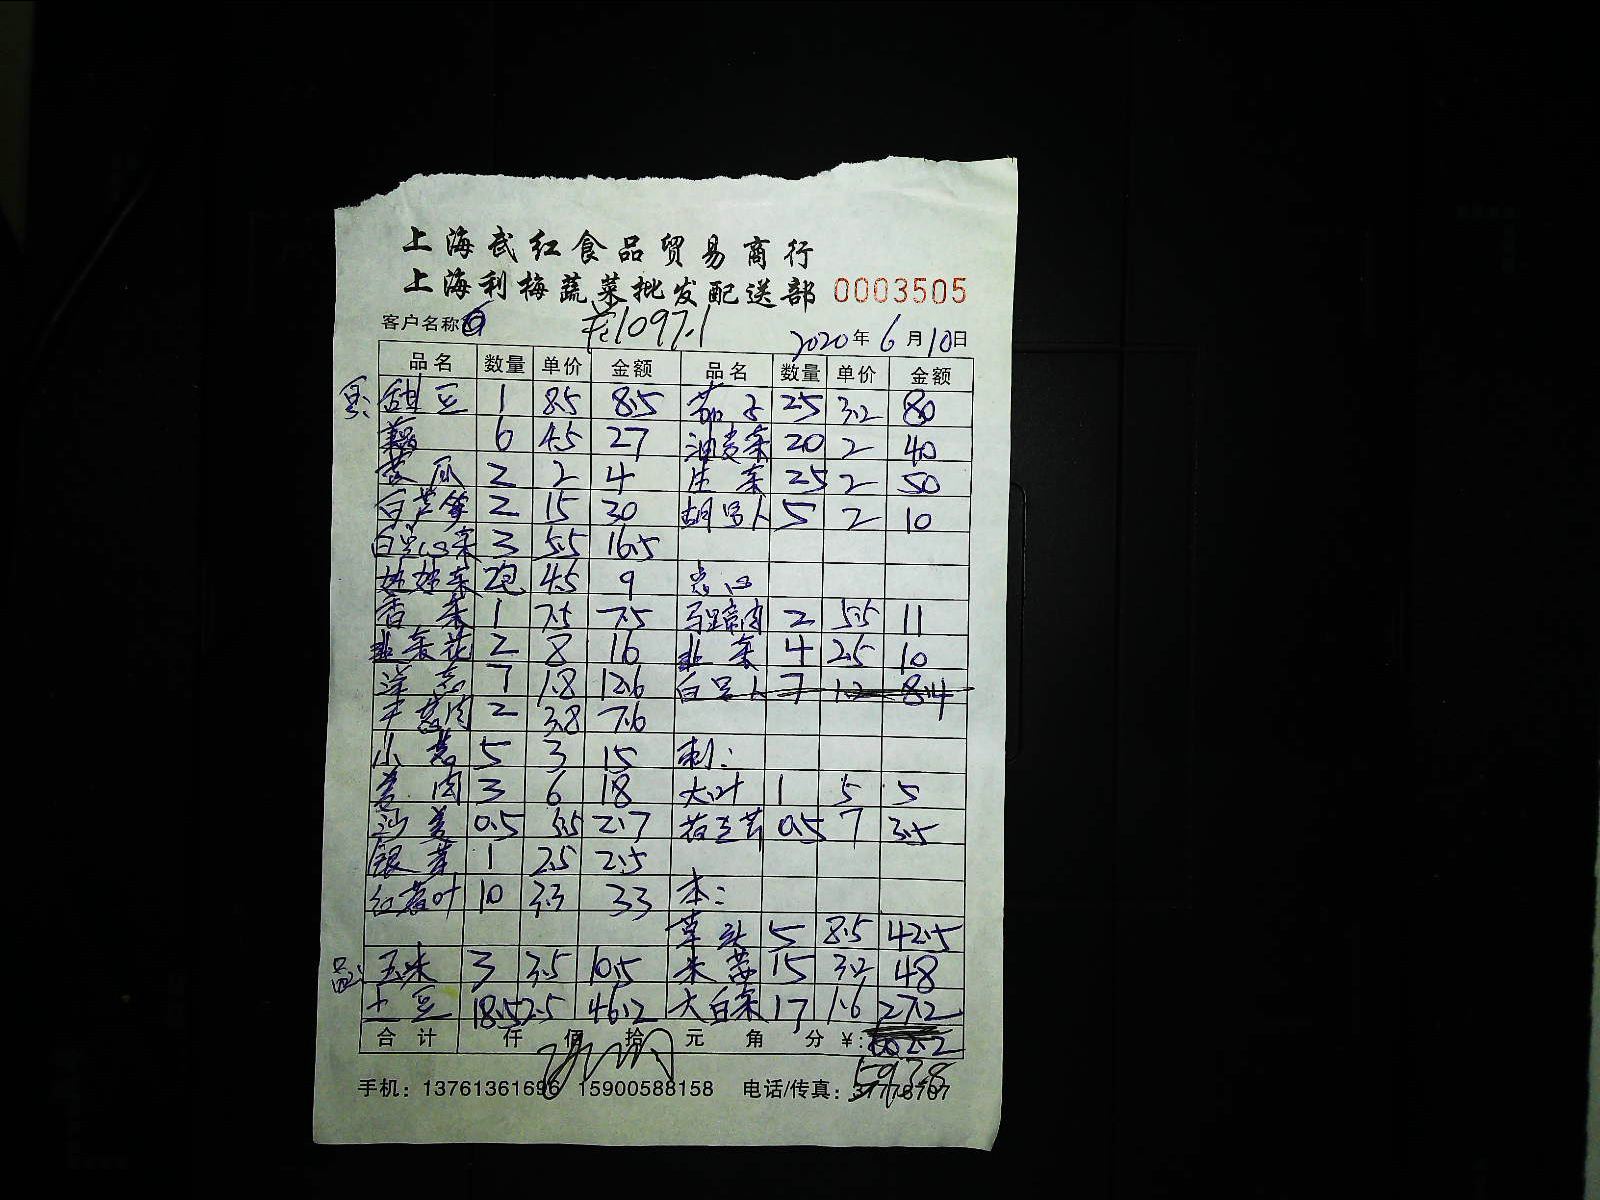 上海武红食品贸易商行
上海利梅蔬菜批发配送部 0003505
客户名称 1097.1 2020年6月10日
品名 数量 单价 金额 品名 数量 单价 金额
甜豆 1 8.5 8.5 茄子 25 3.2 80
6 4.5 27 油麦菜 20 2 40
黄瓜 2 2 4 生菜 25 2 50
白芦笋 2 15 30 胡罗卜 5 2 10
3 5.5 16.5
娃娃菜 2包 4.5 9 点心
香菜 1 7.5 7.5 马蹄肉 2 5.5 11
韭菜花 2 8 16 韭菜 4 2.5 10
洋葱 7 1.8 12.6 白罗卜 7 1.2 8.4
2 3.8 7.6
小葱 5 3 15 刺:
姜肉 3 6 18 大叶 1 5 5
沙姜 0.5 5.5 2.7 0.5 7 3.5
银芽 1 2.5 2.5
红苋叶 10 3.3 33 本:
草头 5 8.5 42.5
玉米 3 3.5 10.5 米苋 15 3.2 48
土豆 18.5 2.5 46.2 大白菜 17 1.6 27.2
合计 仟 佰 拾 元 角 分 ¥: 602.2
593.8
手机: 13761361696 15900588158 电话/传真: